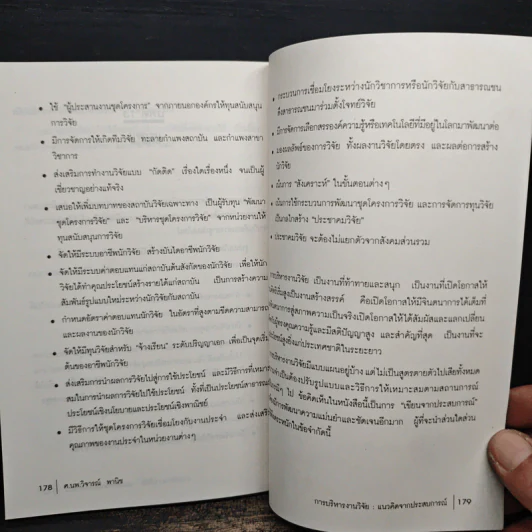 • ใช้ "ผู้ประสานงานชุดโครงการ" จากภายนอกองค์กรให้ทุนสนับสนุน
การวิจัย
• มีการจัดการให้เกิดทีมวิจัย ทะลายกำแพงสถาบัน และกำแพงสาขา
วิชาการ
• ส่งเสริมการทำงานวิจัยแบบ "กัดติด" เรื่องใดเรื่องหนึ่ง จนเป็นผู้
เชี่ยวชาญอย่างแท้จริง
• เสนอให้เพิ่มบทบาทของสถาบันวิจัยเฉพาะทาง เป็นผู้รับทุน "พัฒนา
ชุดโครงการวิจัย" และ "บริหารชุดโครงการวิจัย" จากหน่วยงานให้
ทุนสนับสนุนการวิจัย
• จัดให้มีระบบอาชีพนักวิจัย สร้างบันไดอาชีพนักวิจัย
• จัดให้มีระบบค่าตอบแทนแก่สถาบันต้นสังกัดของนักวิจัย เพื่อให้นัก
วิจัยได้ทำคุณประโยชน์สร้างรายได้แก่สถาบัน เป็นการสร้างความ
สัมพันธ์รูปแบบใหม่ระหว่างนักวิจัยกับสถาบัน
• กำหนดอัตราค่าตอบแทนนักวิจัย ในอัตราที่สูงตามขีดความสามารถ
และผลงานของนักวิจัย
• จัดให้มีทุนวิจัยสำหรับ "จ้างเรียน" ระดับปริญญาเอก เพื่อเป็นจุดเริ่ม
ต้นของอาชีพนักวิจัย
• ส่งเสริมการนำผลการวิจัยไปสู่การใช้ประโยชน์ และมีวิธีการที่เหมาะ
สมในการนำผลการวิจัยไปใช้ประโยชน์ ทั้งที่เป็นประโยชน์สาธารณะ
ประโยชน์เชิงนโยบายและประโยชน์เชิงพาณิชย์
• มีวิธีการให้ชุดโครงการวิจัยเชื่อมโยงกับงานประจำ และส่งเสริม
คุณภาพของงานประจำในหน่วยงานต่างๆ
178 ศ.นพ.วิจารณ์ พานิช
• กระบวนการเชื่อมโยงระหว่างนักวิชาการหรือนักวิจัยกับสาธารณชน
สาธารณชนมาร่วมตั้งโจทย์วิจัย
• มีการจัดการเลือกสรรองค์ความรู้หรือเทคโนโลยีที่มีอยู่ในโลกมาพัฒนาต่อ
ผลลัพธ์ของการวิจัย ทั้งผลงานวิจัยโดยตรง และผลต่อการสร้าง
นักวิจัย
"สังเคราะห์" ในขั้นตอนต่างๆ
ใช้กระบวนการพัฒนาชุดโครงการวิจัย และการจัดการทุนวิจัย
สร้าง "ประชาคมวิจัย"
• ประชาคมวิจัย จะต้องไม่แยกตัวจากสังคมส่วนรวม
การบริหารงานวิจัย เป็นงานที่ท้าทายและสนุก เป็นงานที่เปิดโอกาสให้
สูงเป็นงานสร้างสรรค์ คือเปิดโอกาสให้มีจินตนาการได้เต็มที่
จินตนาการสู่สภาพความเป็นจริงเปิดโอกาสให้ได้สัมผัสและแลกเปลี่ยน
ผู้ทรงคุณความรู้และมีสติปัญญาสูง และสำคัญที่สุด เป็นงานที่จะ
ประโยชน์สูงยิ่งแก่ประเทศชาติในระยะยาว
บริหารงานวิจัยมีแบบแผนอยู่บ้าง แต่ไม่เป็นสูตรตายตัวไปเสียทั้งหมด
จำเป็นต้องปรับรูปแบบและวิธีการให้เหมาะสมตามสถานการณ์
ไป ข้อคิดเห็นในหนังสือนี้เป็นการ "เขียนจากประสบการณ์"
มีการพัฒนาความแม่นยำและชัดเจนอีกมาก ผู้ที่จะนำส่วนใดส่วน
ตระหนักในข้อจำกัดนี้
การบริหารงานวิจัย : แนวคิดจากประสบการณ์ 179